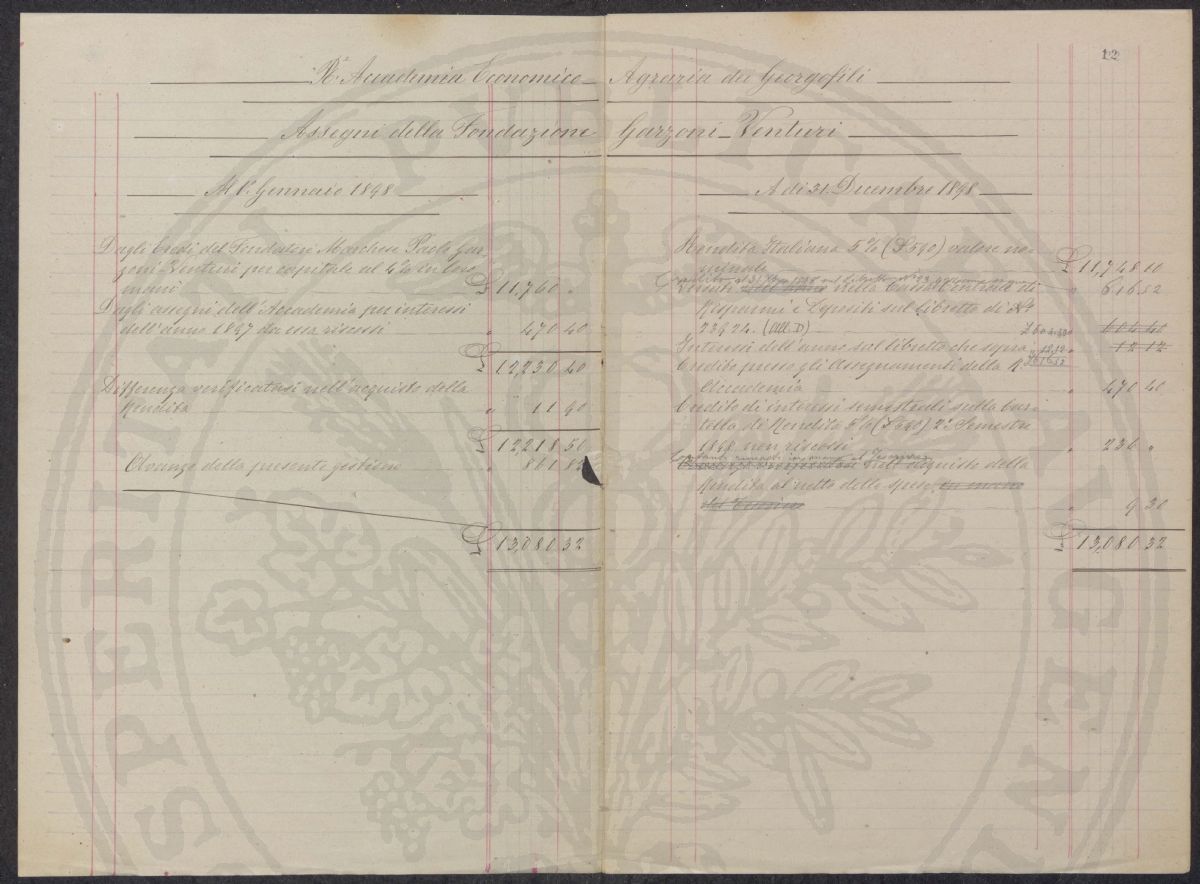 12
Ra. Accademia Economico Agraria dei Georgofili
Assegni della Fondazione Garzoni Venturi
Al 1º Gennaio 1898
Dagli Eredi del Fondatore Marchese Paolo Gar-
zoni Venturi per capitale al 4% in loro
mani £ 11,760 "
Dagli assegni dell'Accademia per interessi
dell'anno 1897 da essa riscossi " 470 40
£ 12230 40
Differenza verificatasi nell'acquisto della
Rendita " 11 90
£ 12,218 50
Avanzo della presente gestione " 861 82
£ 13,080 32
A di 31. Decembre 1898
Rendita Italiana 5% (£ 590) valore no-
minale £ 11,748 10
Credito al 31 1898 sul libretto
della Cassa Centrale di " 616 52
Risparmi e Depositi sul libretto di No
23624. (All. D) £ 604.40 " 604 40
Interessi dell'anno sul libretto che sopra " 12.12 " 12 12
£ 616.52
Credito presso gli Assegnamenti della R.
Accademia " 470 40
Credito di interessi semestrali sulla Car-
tella di Rendita 5% (£ 590) 2º Semestre
1898 non riscossi " 236 "
Contanti rimasti in mano al Tesoriere
nell'acquisto della
Rendita al netto delle spese in mano
del " 9 30
£ 13,080 32
SPERITATI PVBLICAE AVGEND